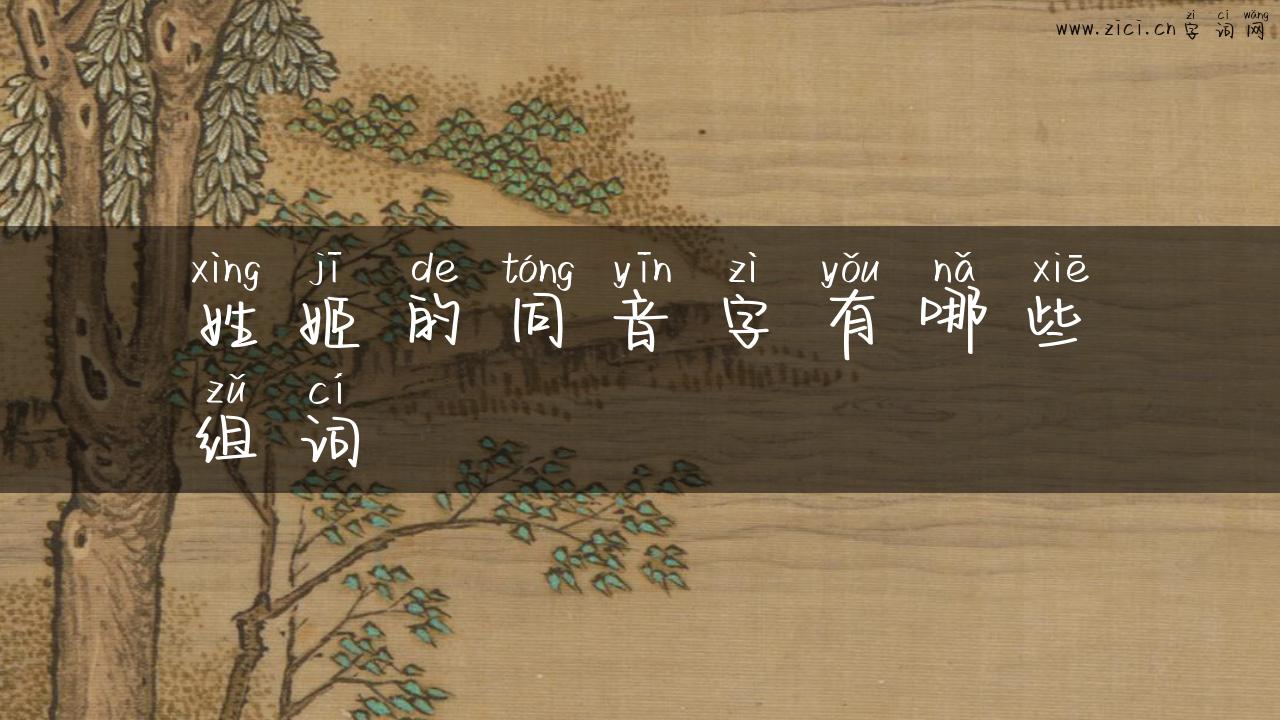 zì cí wǎng
www.zici.cn 字词网
xìng jī de tóng yīn zì yǒu nǎ xiē
姓姬的同音字有哪些
zǔ cí
组词